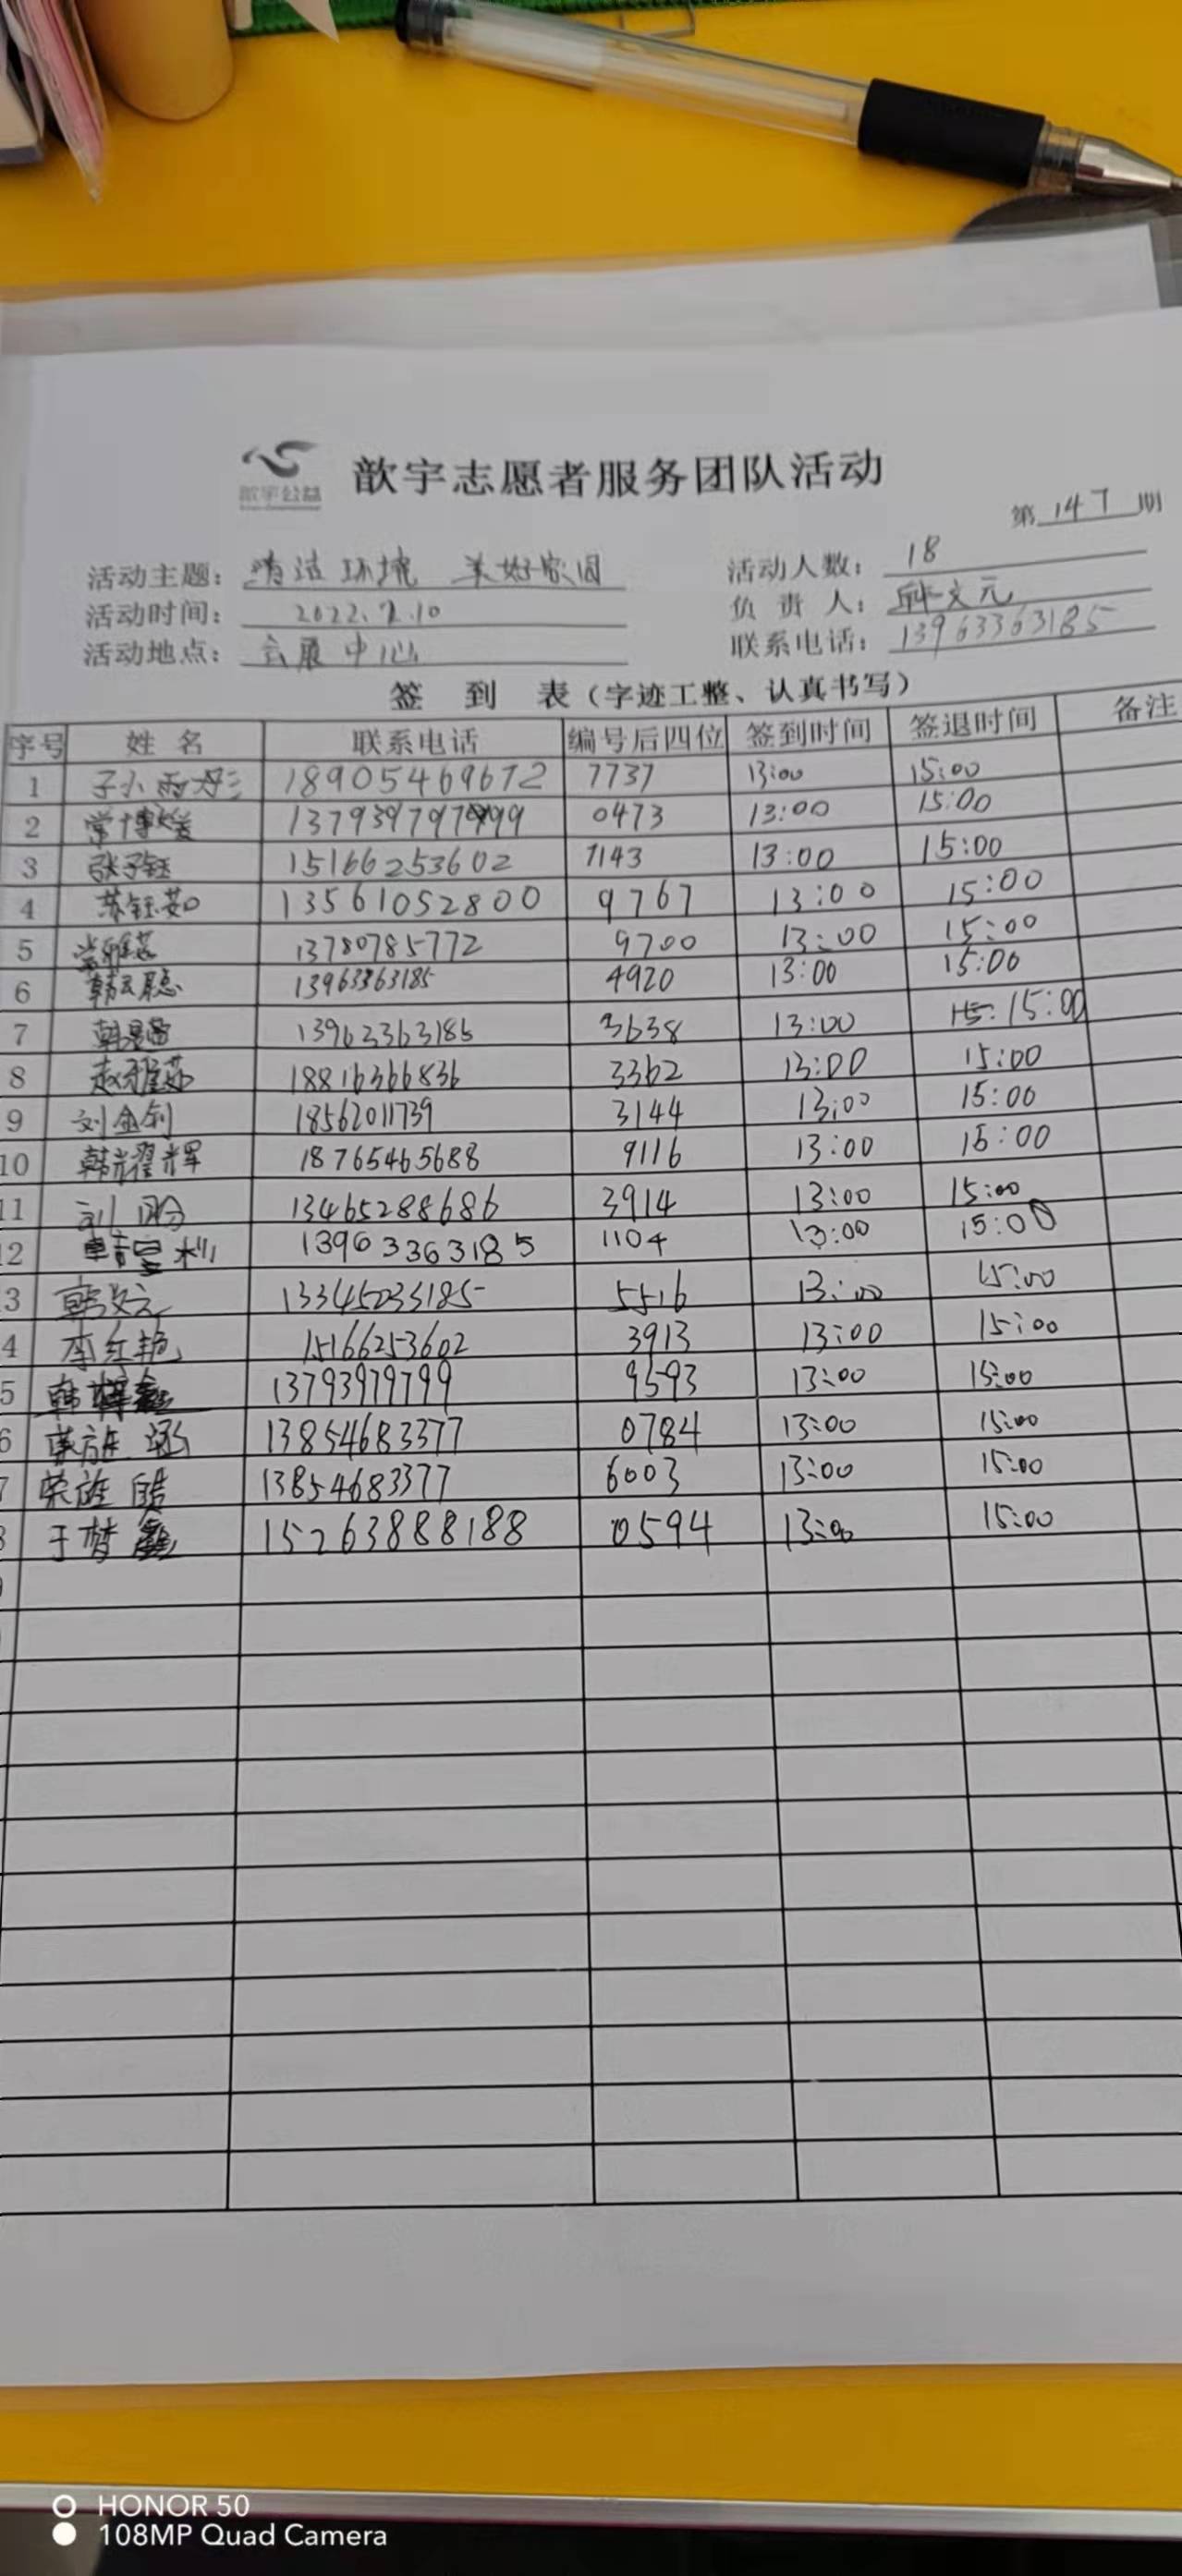 歆宇公益
歆宇志愿者服务团队活动
第 147 期
活动主题: 清洁环境 美好家园
活动人数: 18
活动时间: 2022.2.10
负责人: 韩文元
活动地点: 会展中心
联系电话: 13963363185
签到表(字迹工整、认真书写)
序号 姓名 联系电话 编号后四位 签到时间 签退时间 备注
1 18905469672 7737 13:00 15:00
2 常博媛 0473 13:00 15:00
3 张子钰 15166253602 7143 13:00 15:00
4 苏钰茹 13561052800 9767 13:00 15:00
5 13780785772 9700 13:00 15:00
6 韩云聪 13963363185 4920 13:00 15:00
7 13962363185 3638 13:00 15:00
8 赵雅茹 18816366836 3362 13:00 15:00
9 刘金剑 18562011739 3144 13:00 15:00
10 韩耀辉 18765465688 9116 13:00 15:00
11 刘盼 13465288686 3914 13:00 15:00
2 13963363185 1104 13:00 15:00
3 韩文元 5516 13:00 15:00
4 李红艳 15166253602 3913 13:00 15:00
5 韩梓鑫 13793979799 9593 13:00 15:00
6 荣旌 13854683377 0784 13:00 15:00
7 荣旌皓 13854683377 6003 13:00 15:00
8 于梦鑫 15263888188 0594 13:00 15:00
HONOR 50
108MP Quad Camera